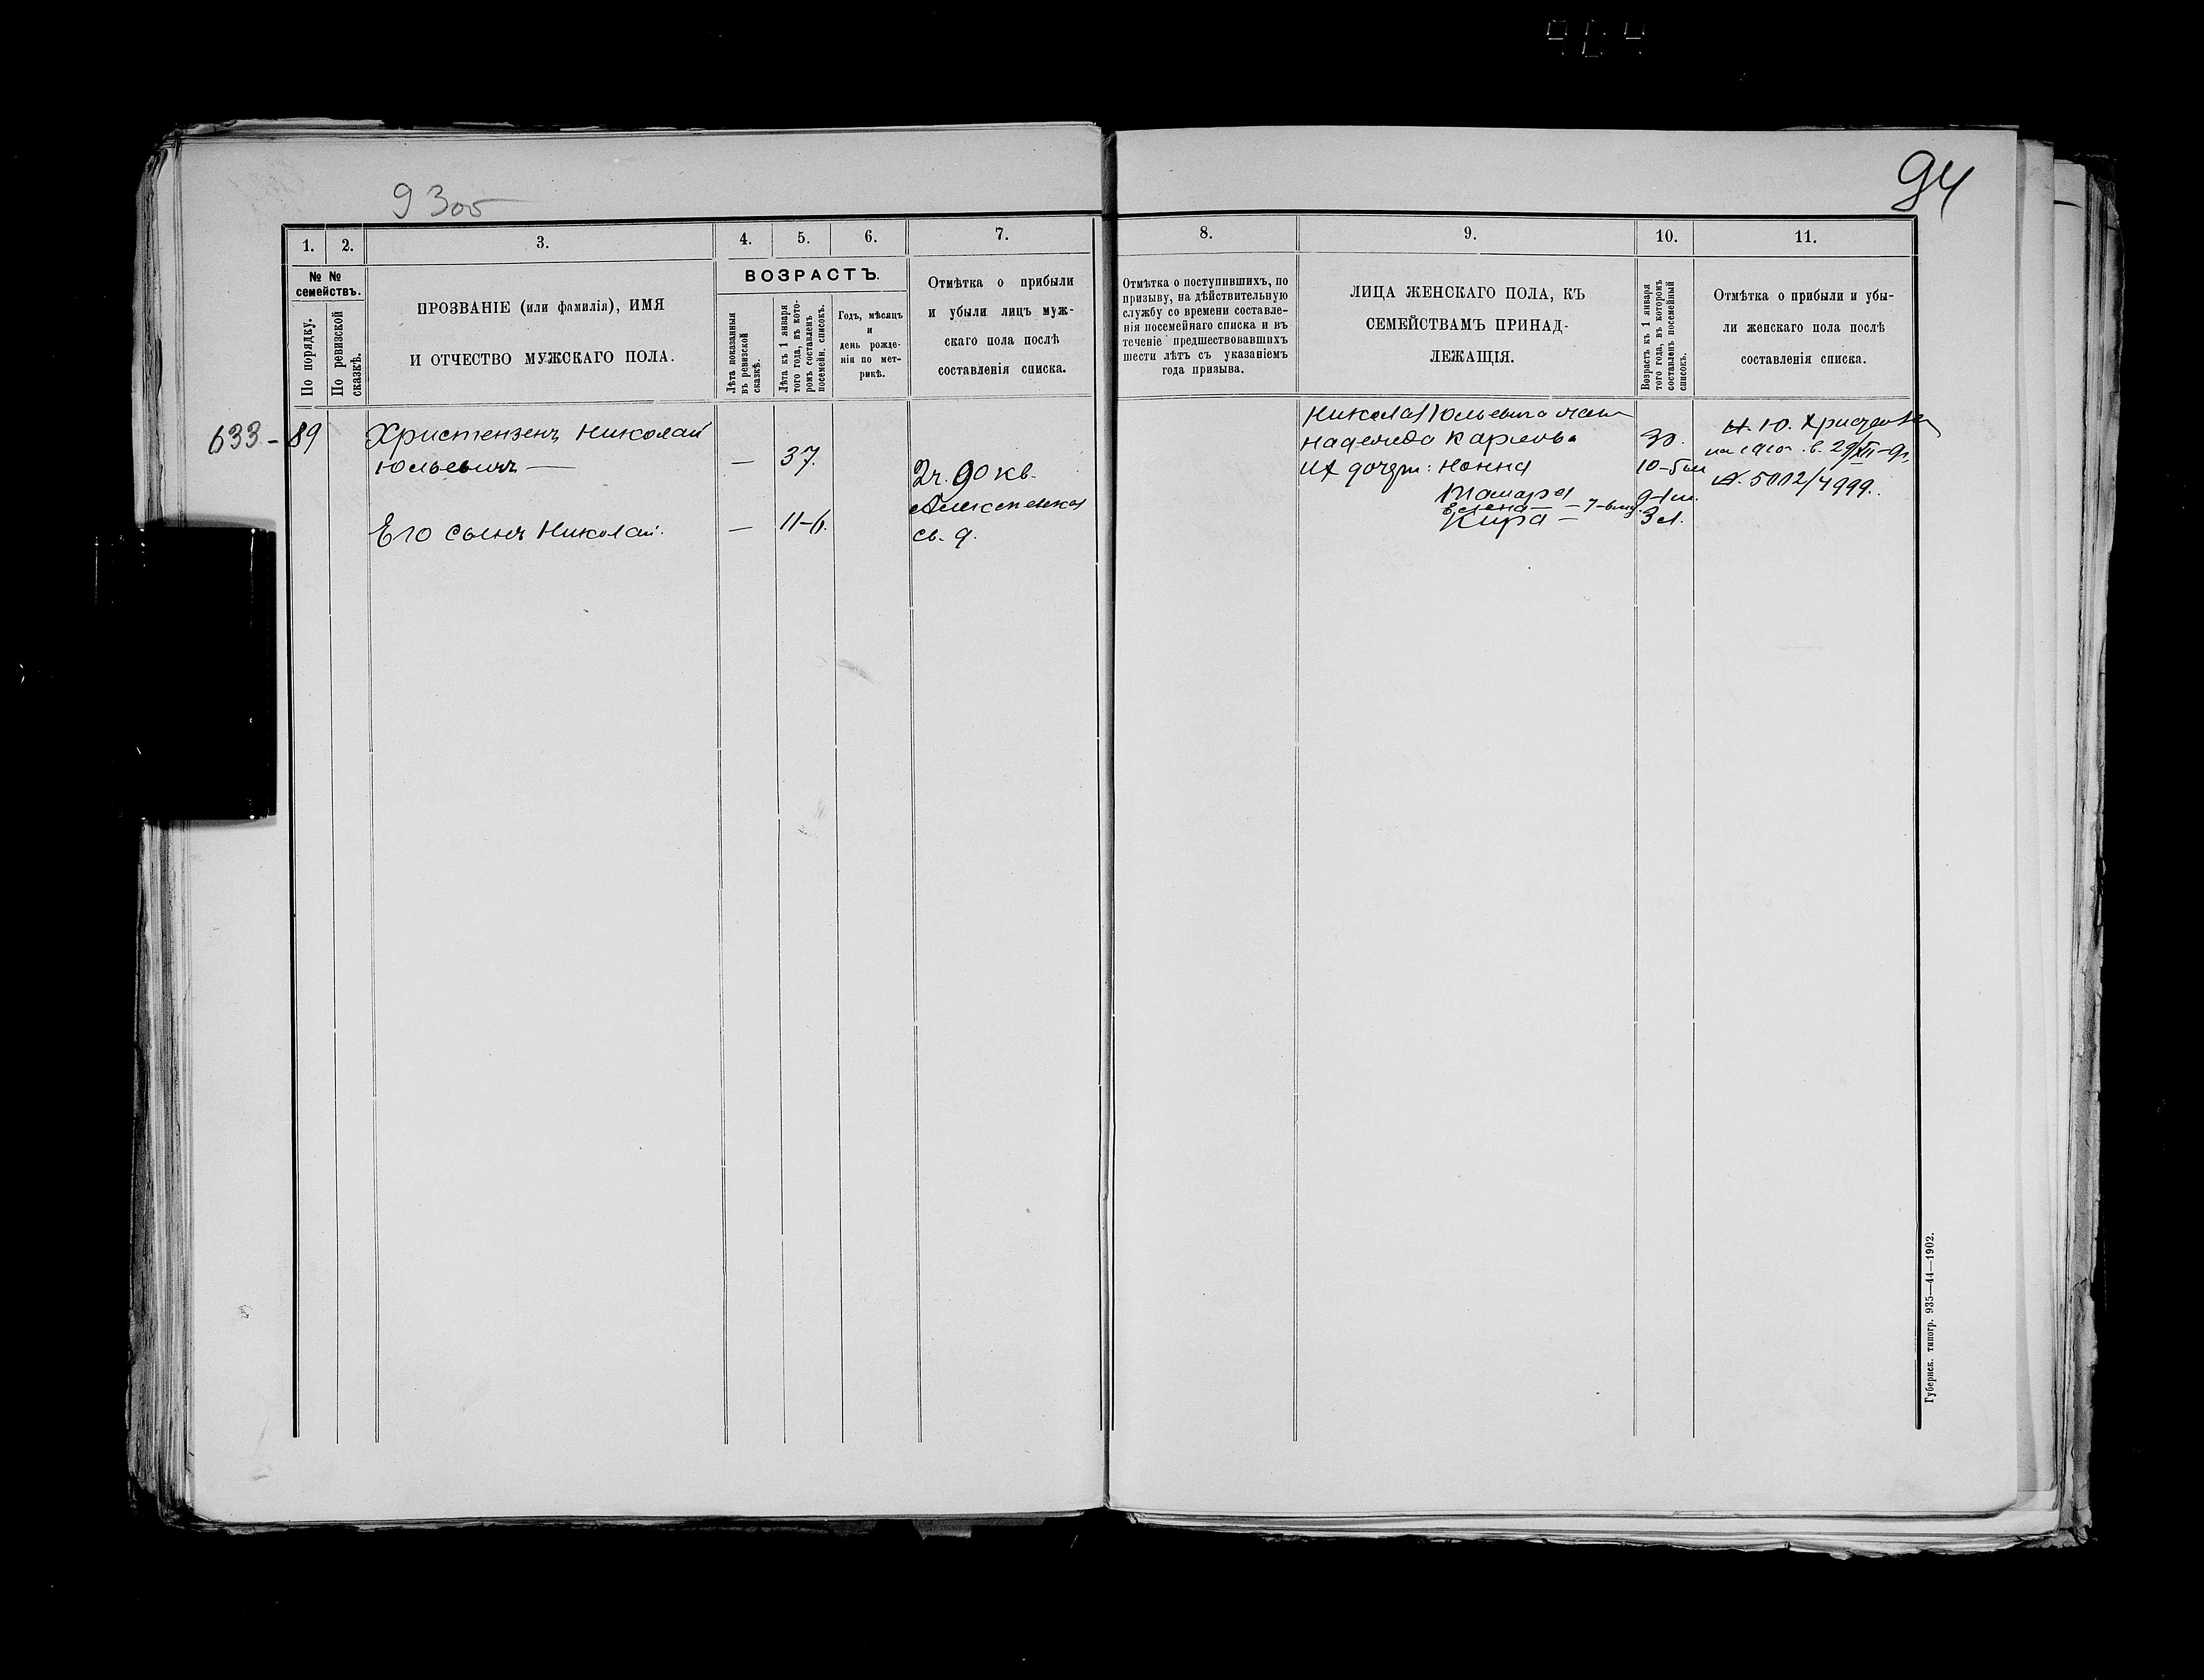 9305
94
1.
2.
3.
4.
5.
6.
7.
8.
9.
10.
11.
№ №
семействъ.
По порядку.
По ревизской
сказкѣ.
ПРОЗВАНІЕ (или фамилія), ИМЯ
И ОТЧЕСТВО МУЖСКАГО ПОЛА.
ВОЗРАСТЪ.
Лѣта показанныя
въ ревизской
сказкѣ.
Лѣта къ 1 января
того года, въ кото-
ромъ составленъ
посемейн. списокъ.
Годъ, мѣсяцъ
и
день рожде-
нія по мет-
рикѣ.
Отмѣтка о прибыли
и убыли лицъ муж-
скаго пола послѣ
составленія списка.
Отмѣтка о поступившихъ, по
призыву, на дѣйствительную
службу со времени составле-
нія посемейнаго списка и въ
теченіе предшествовавшихъ
шести лѣтъ съ указаніемъ
года призыва.
ЛИЦА ЖЕНСКАГО ПОЛА, КЪ
СЕМЕЙСТВАМЪ ПРИНАД-
ЛЕЖАЩІЯ.
Возрастъ къ 1 января
того года, въ которомъ
составленъ посемейный
списокъ.
Отмѣтка о прибыли и убы-
ли женскаго пола послѣ
составленія списка.
633 - 89
Христензенъ Николай
Юльевичъ —
— 37.
2ч. 90 кв.
Алексѣевская
св. д.
Его сынъ Николай.
— 11-6.
Николая Юльевича жена
Надежда Карлова 30.
Их дочери: Нонна 10-5 м
Тамара 9-1 м.
Елена — 7-6 м.
Кира — 3 л.
Н. Ю. Христензен
№ 5012/4999.
Губернск. типогр. 935—44—1902.